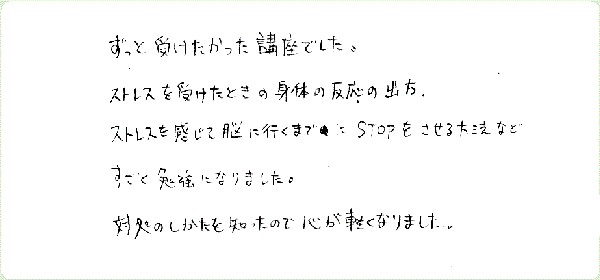 ずっと受けたかった講座でした。
ストレスを受けたときの身体の反応の出方、
ストレスを感じて脳に行くまでにSTOPをさせる方法など
すごく勉強になりました。
対処のしかたを知ったので心が軽くなりました。